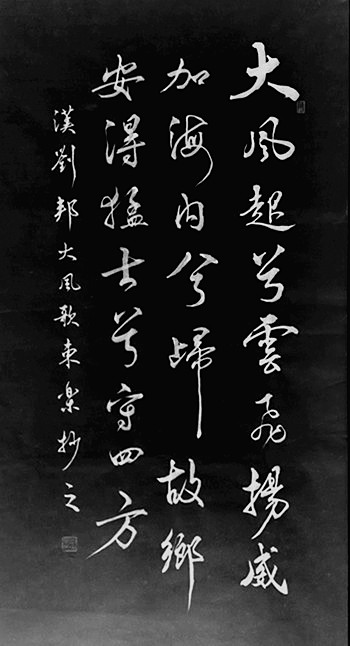 大風起兮雲飛揚威
加海内兮歸故鄉
安得猛士兮守四方
漢劉邦大風歌東樂抄之